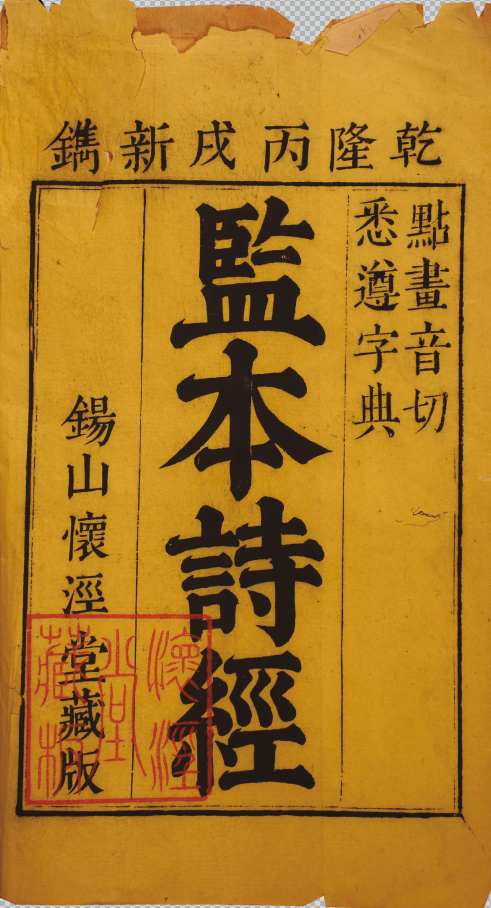 乾隆丙戌新鐫
點畫音切
悉遵字典
監本詩經
錫山懷涇堂藏版
懷涇
堂
藏板